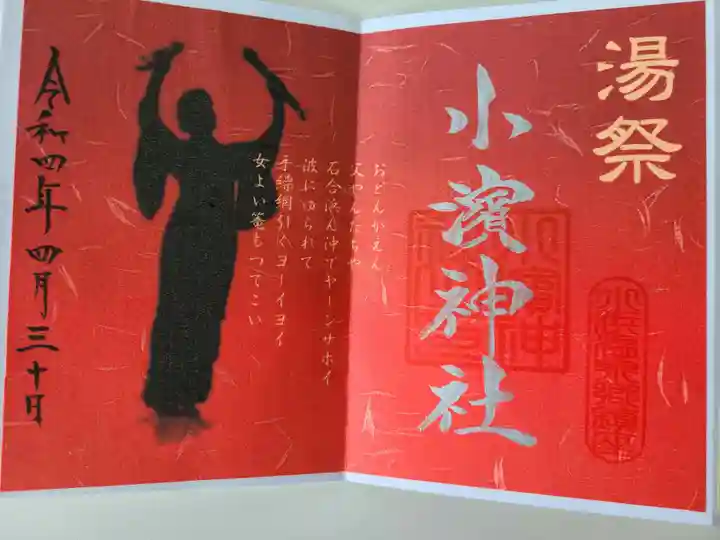 湯祭
小濱神社
おどんがえん
父やんたちゃ
石合浜ん沖でヤーンサホイ
波にゆられて
手繰網引くヨーイヨイ
女よい篭もってこい
令和四年四月三十日